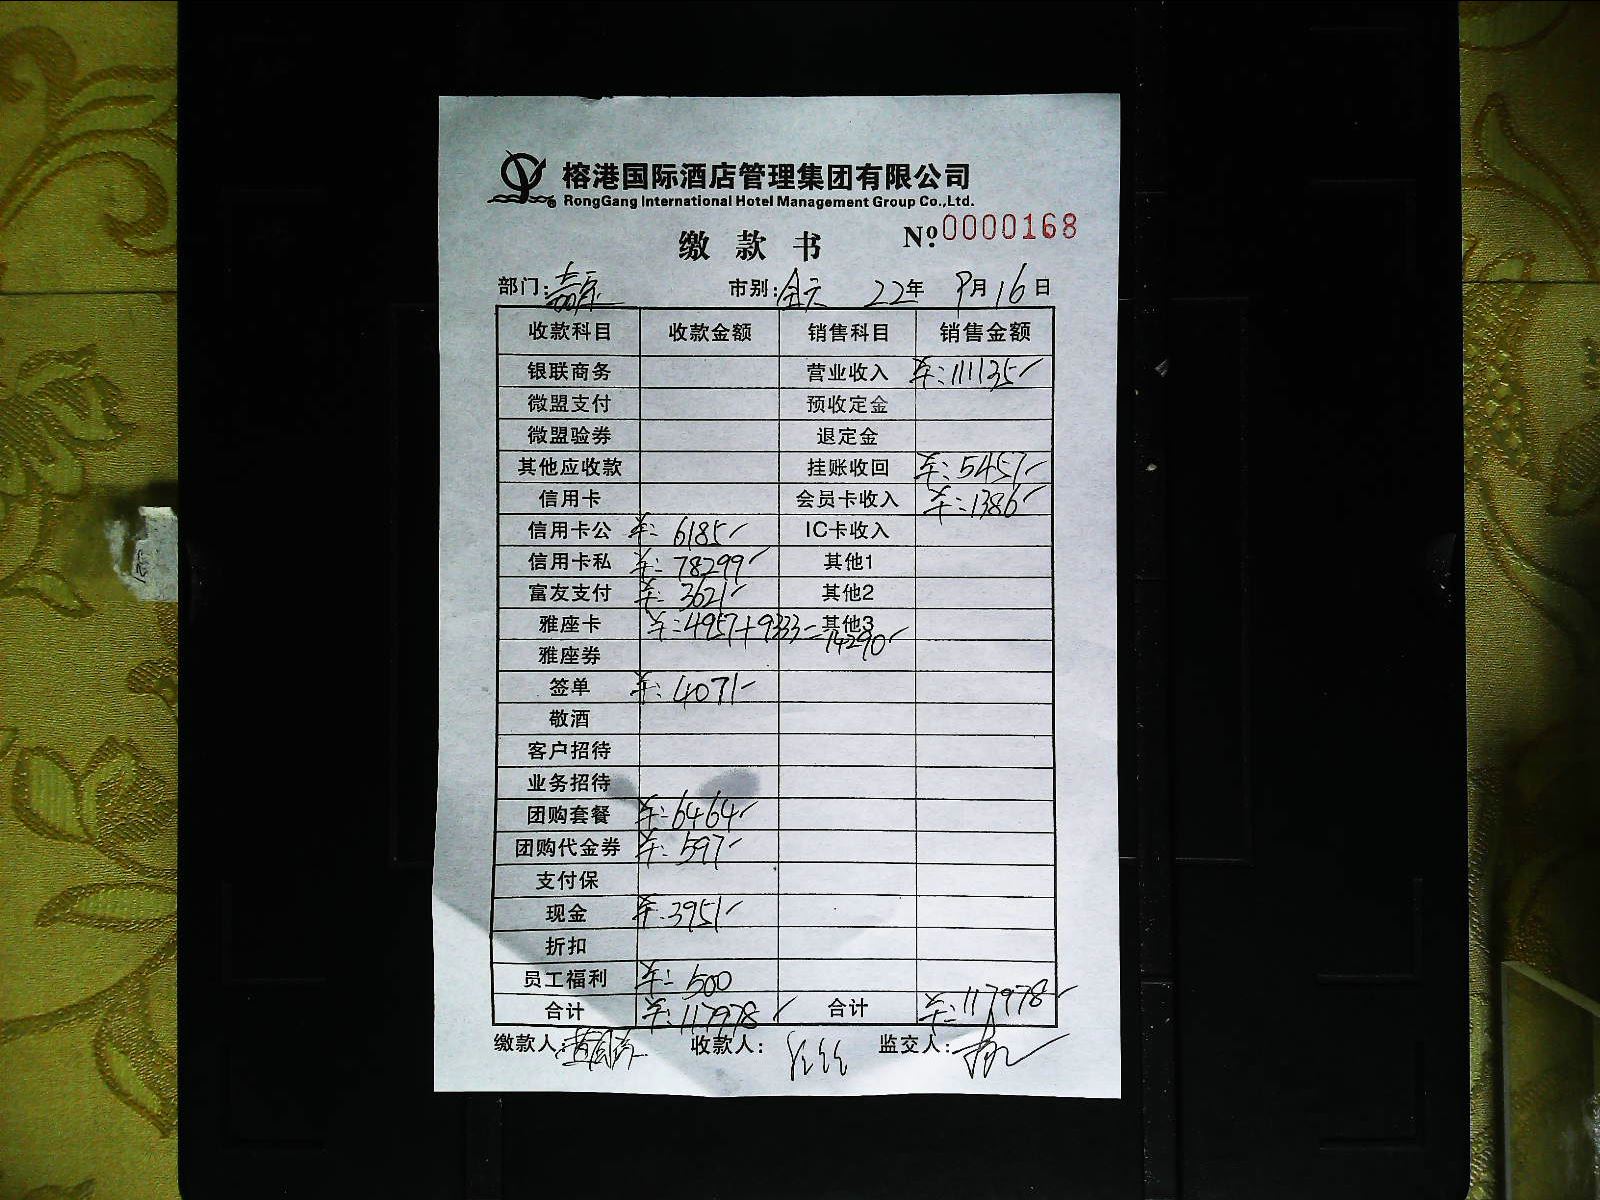 榕港国际酒店管理集团有限公司
RongGang International Hotel Management Group Co.,Ltd.
缴款书 №0000168
部门: 市别:全天 22年 9月16日
收款科目 收款金额 销售科目 销售金额
银联商务 营业收入 ¥:111135
微盟支付 预收定金
微盟验券 退定金
其他应收款 挂账收回 ¥:5457
信用卡 会员卡收入 ¥:1386
信用卡公 ¥:6185 IC卡收入
信用卡私 ¥:78299 其他1
富友支付 ¥:3621 其他2
雅座卡 ¥:4957+9333=14290 其他3
雅座券
签单 ¥:4071
敬酒
客户招待
业务招待
团购套餐 ¥:6464
团购代金券 ¥:597
支付保
现金 ¥:3951
折扣
员工福利 ¥:500
合计 ¥:117978 合计 ¥:117978
缴款人: 收款人: 监交人: